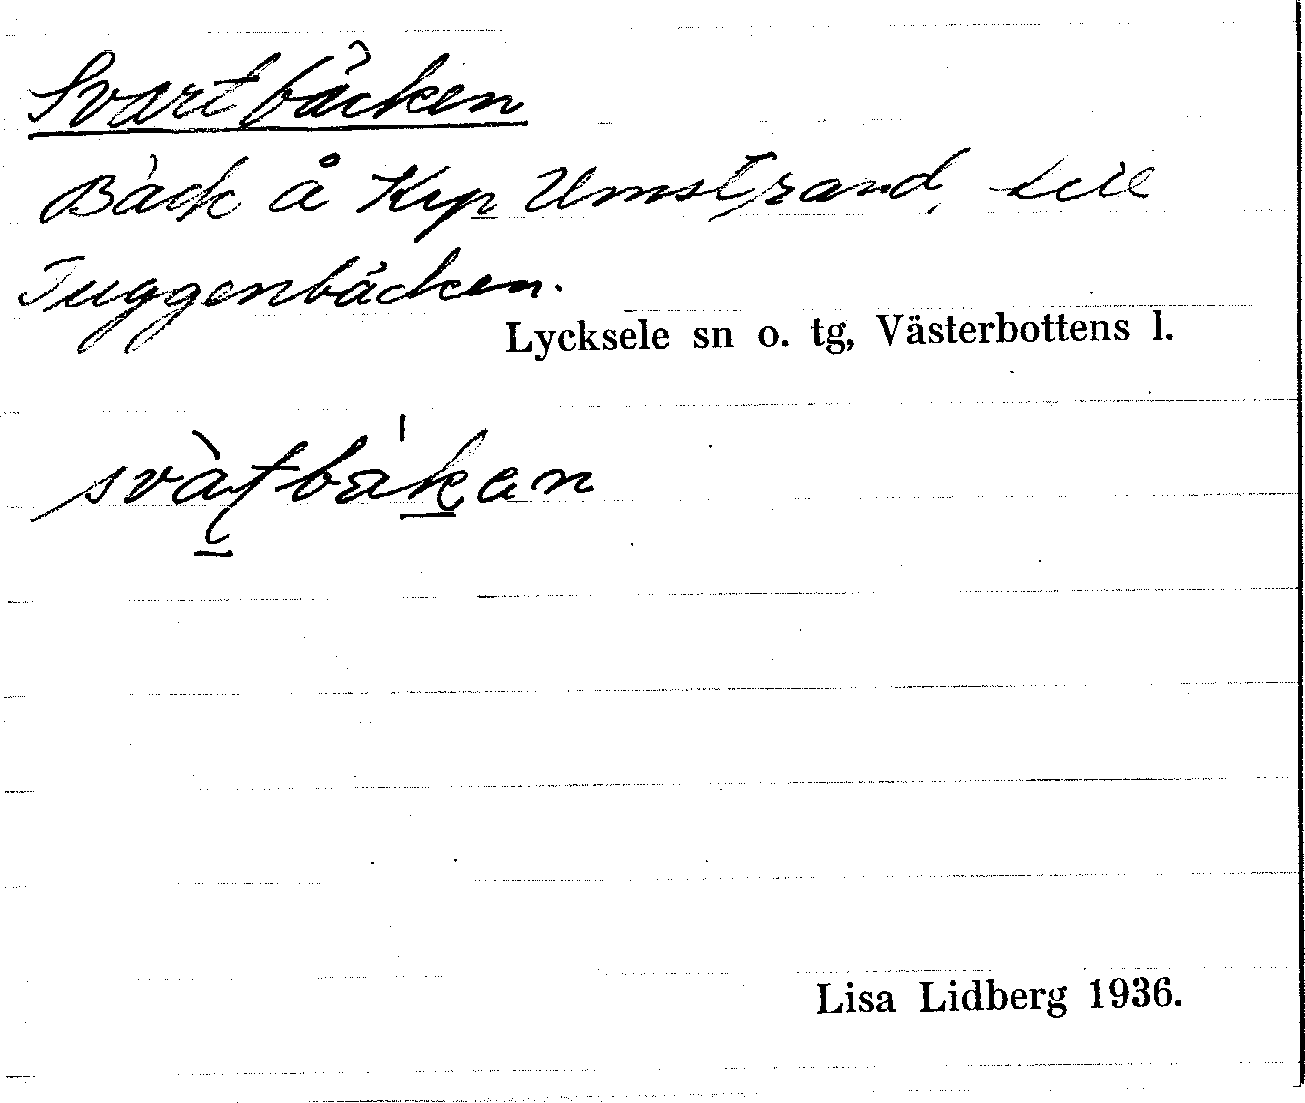 Svartbäcken
Bäck å Krp Umstrand, till
Tuggenbäcken.
Lycksele sn o. tg, Västerbottens l.
svàtbäkan
Lisa Lidberg 1936.